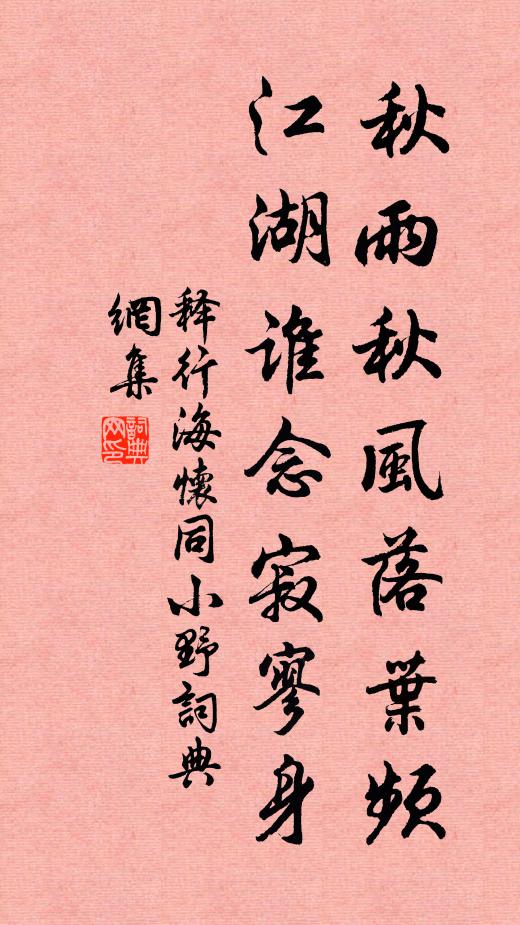 秋雨秋風落葉頻
江湖谁念寂寥身
释行海懷同小野詞典
網集
詞典网印